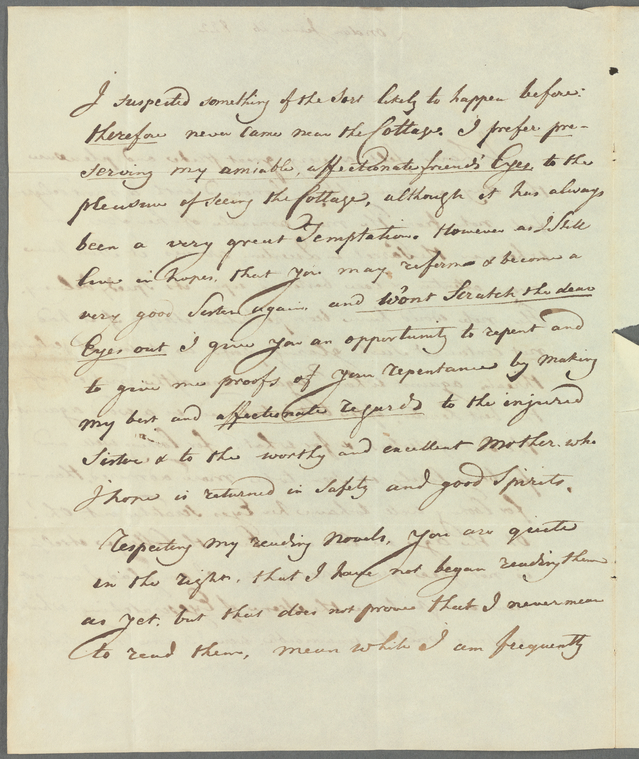 I suspected something of the sort likely to happen before:
therefore never came near the Cottage. I prefer pre-
serving my amiable, affectionate friend's Eyes, to the
pleasure of seeing the Cottage, although it has always
been a very great Temptation. However as I still
live in hopes, that you may reform & become a
very good Sister again, and won't Scratch the dear
Eyes out I give you an opportunity to repent and
to give me proofs of your repentance by making
my best and affectionate regards to the injured
Sister & to the worthy and excellent Mother who
I hope is returned in Safety and good Spirits.
Respecting my reading Novels, you are quite
in the right, that I have not began reading them
as yet, but that does not prove that I never mean
to read them, mean while I am frequently